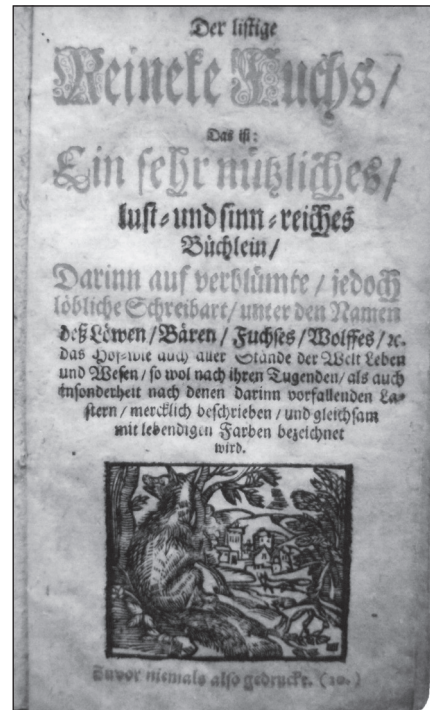 Der listige
Reineke Fuchs/
Das ist:
Ein sehr nützliches/
lust- und sinn-reiches
Büchlein/
Darinn auf verblümte / jedoch
löbliche Schreibart/ unter den Namen
deß Löwen/ Bären / Fuchses / Wolffes / ꝛc.
das Hof-wie auch aller Stände der Welt Leben
und Wesen / so wol nach ihren Tugenden/ als auch
insonderheit nach denen darinn vorfallenden La-
stern / mercklich beschrieben / und gleichsam
mit lebendigen Farben bezeichnet
wird.
Zuvor niemals also gedruckt. (10.)